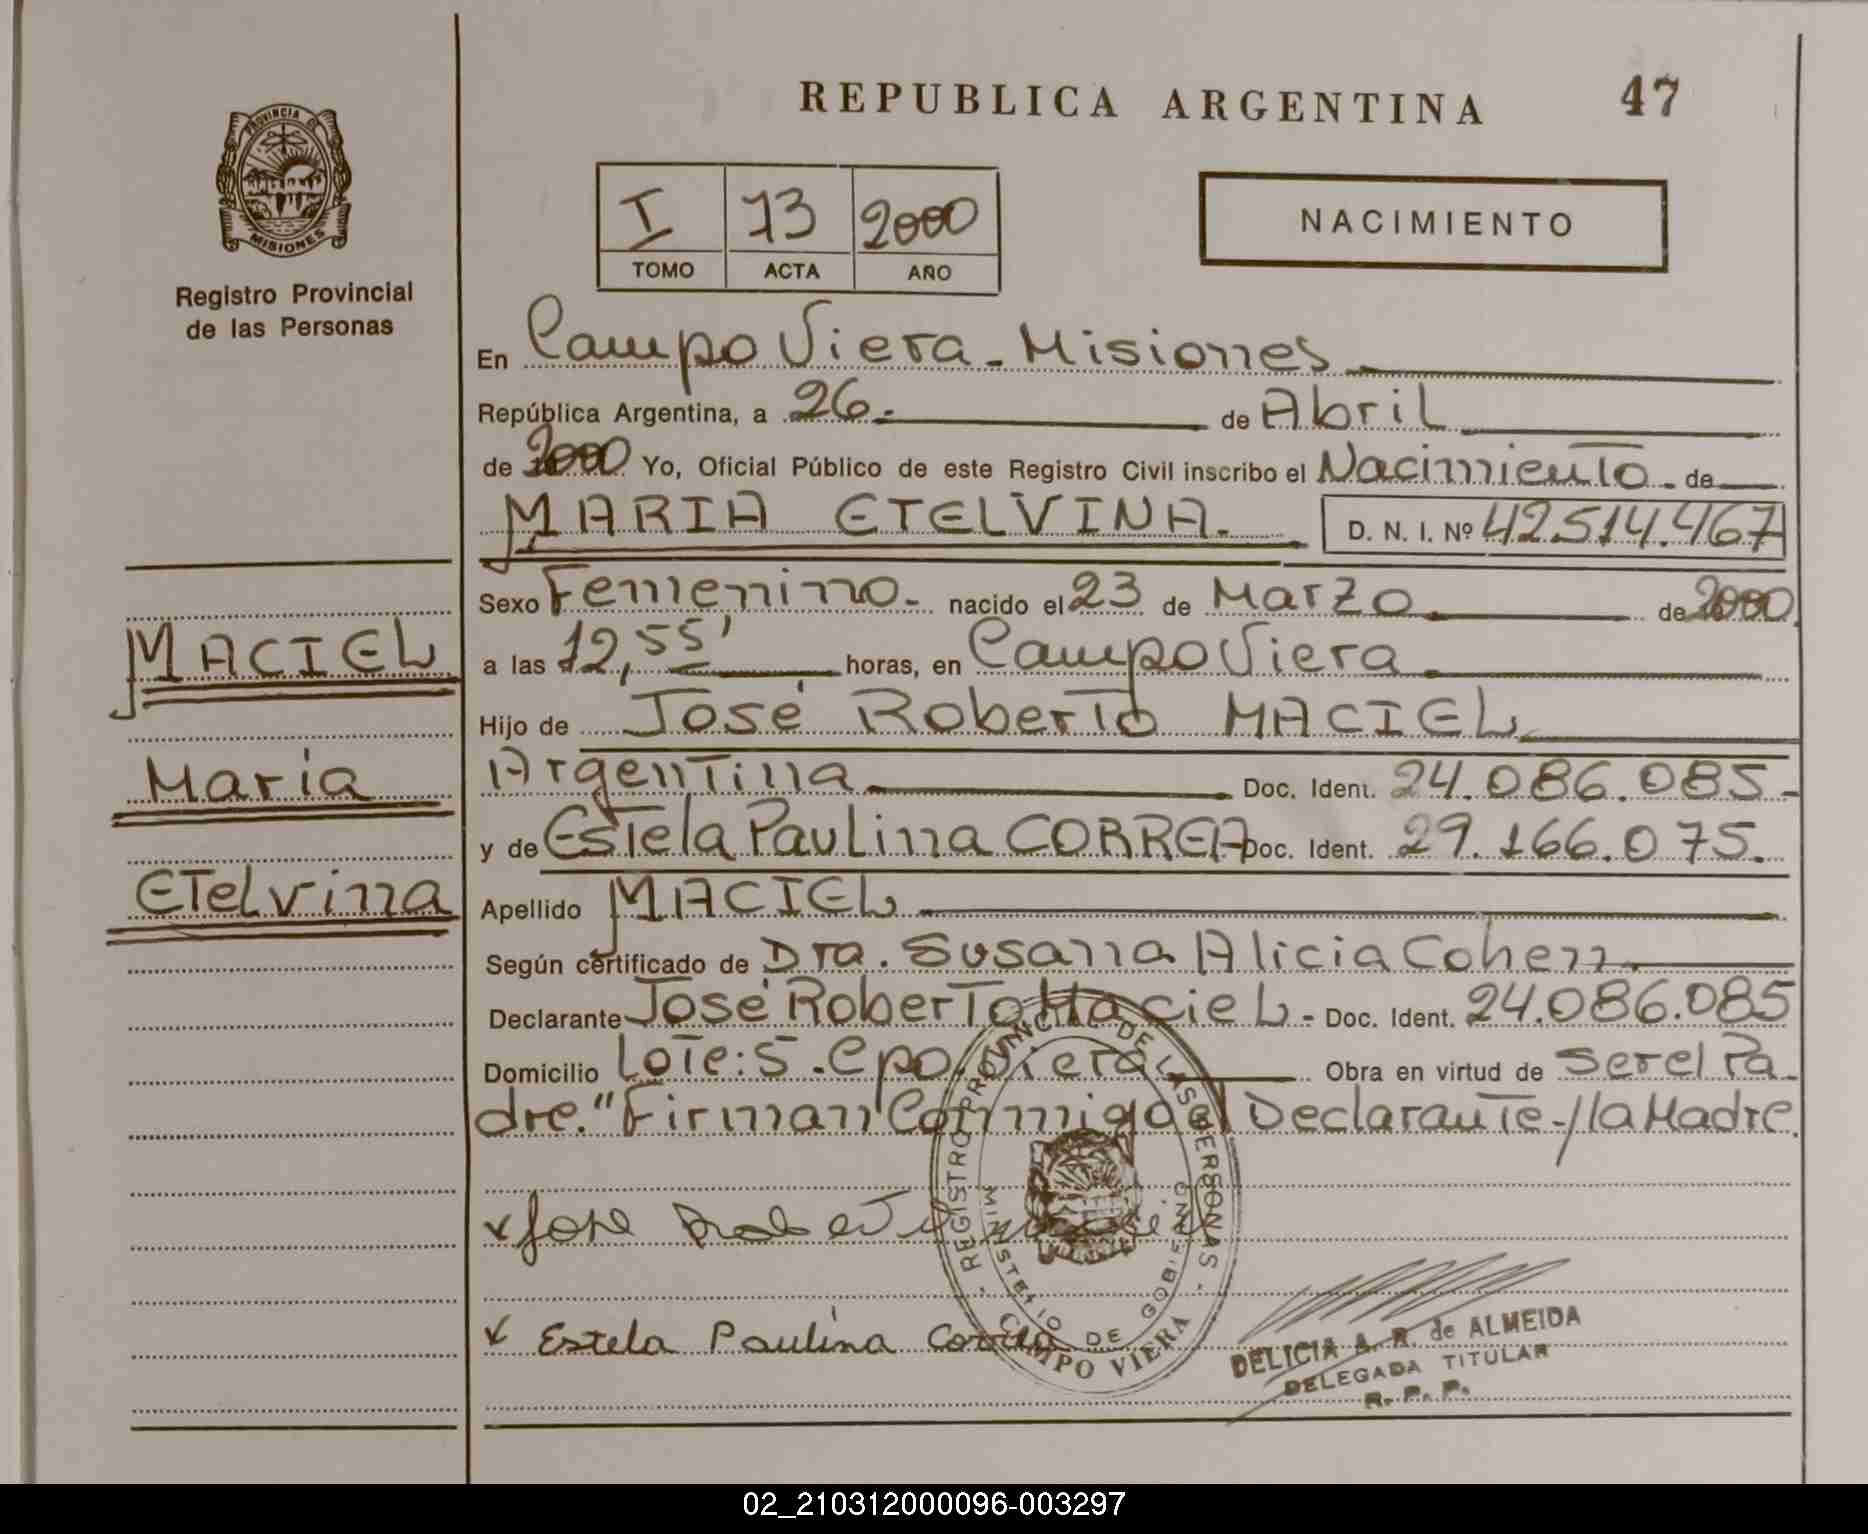 REPUBLICA ARGENTINA 47
PROVINCIA DE
MISIONES
Registro Provincial
de las Personas
I 73 2000
TOMO ACTA AÑO
NACIMIENTO
En Campo Viera - Misiones
República Argentina, a 26.- de Abril
de 2000 Yo, Oficial Público de este Registro Civil inscribo el Nacimiento - de
MARIA ETELVINA.- D. N. I. Nº 42.514.467
Sexo Femenino.- nacido el 23 de Marzo de 2000
a las 12,55' horas, en Campo Viera
Hijo de José Roberto MACIEL
Argentina Doc. Ident. 24.086.085.-
y de Estela Paulina CORREA Doc. Ident. 29.166.075.
Apellido MACIEL
Según certificado de Dra. Susana Alicia Cohen.
Declarante José Roberto Maciel.- Doc. Ident. 24.086.085
Domicilio Lote: 5 . Cpo. Viera Obra en virtud de ser el Pa-
dre." Firman Conmigo el Declarante-//la Madre.
MACIEL
Maria
Etelvina
Jose
Estela Paulina Correa
REGISTRO PROVINCIAL DE LAS PERSONAS
MINISTERIO DE GOBIERNO
CAMPO VIERA
DELICIA A. R. de ALMEIDA
DELEGADA TITULAR
R. P. P.
02_210312000096-003297